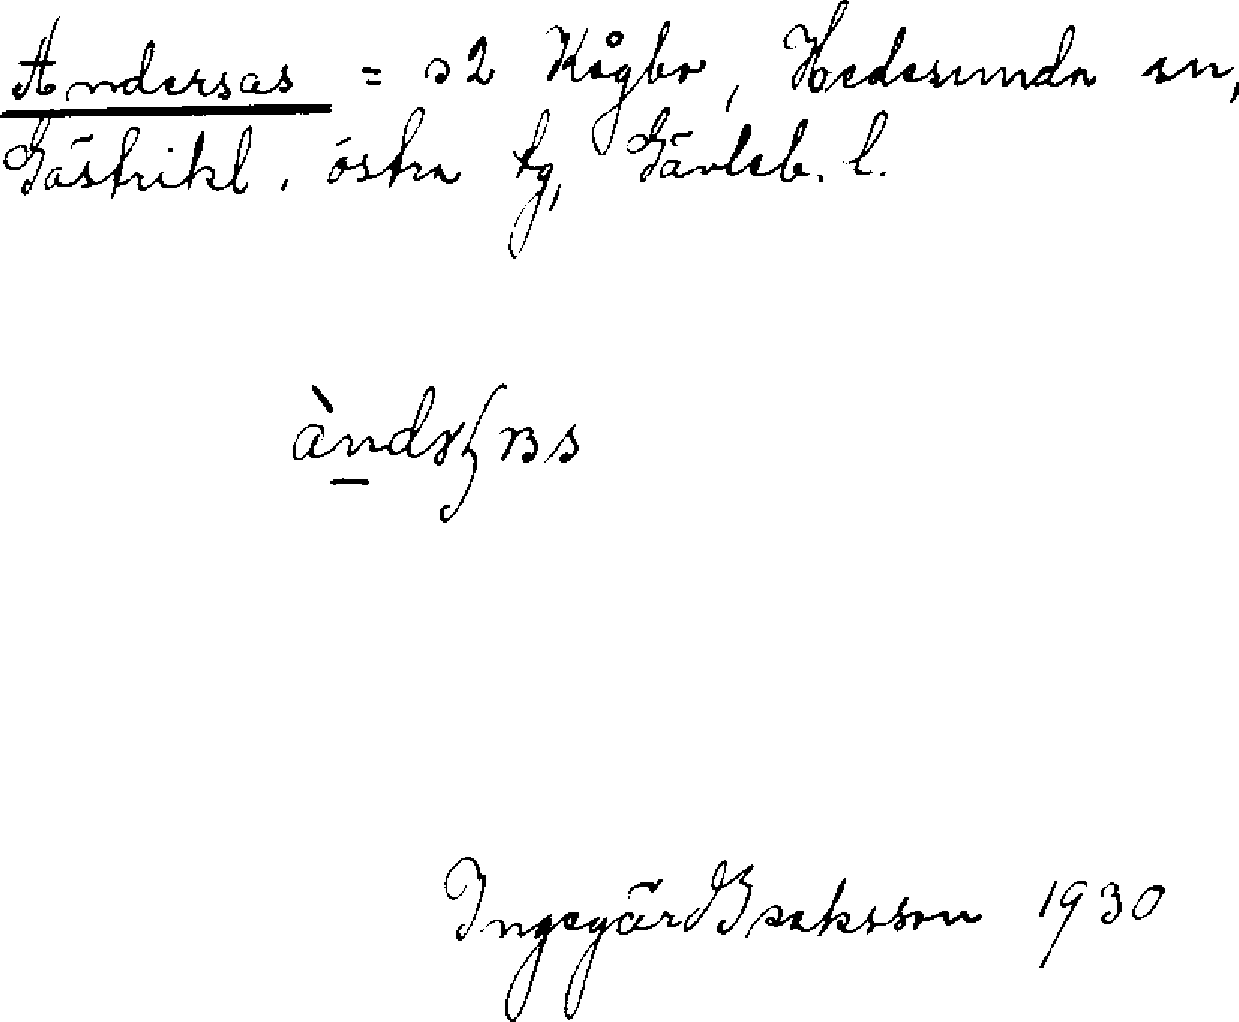 Andersas = s2 Kågbo, Hedesunda sn,
Gästrikl. östra tg, Gävleb. l.
Ingegärd Isaksson 1930